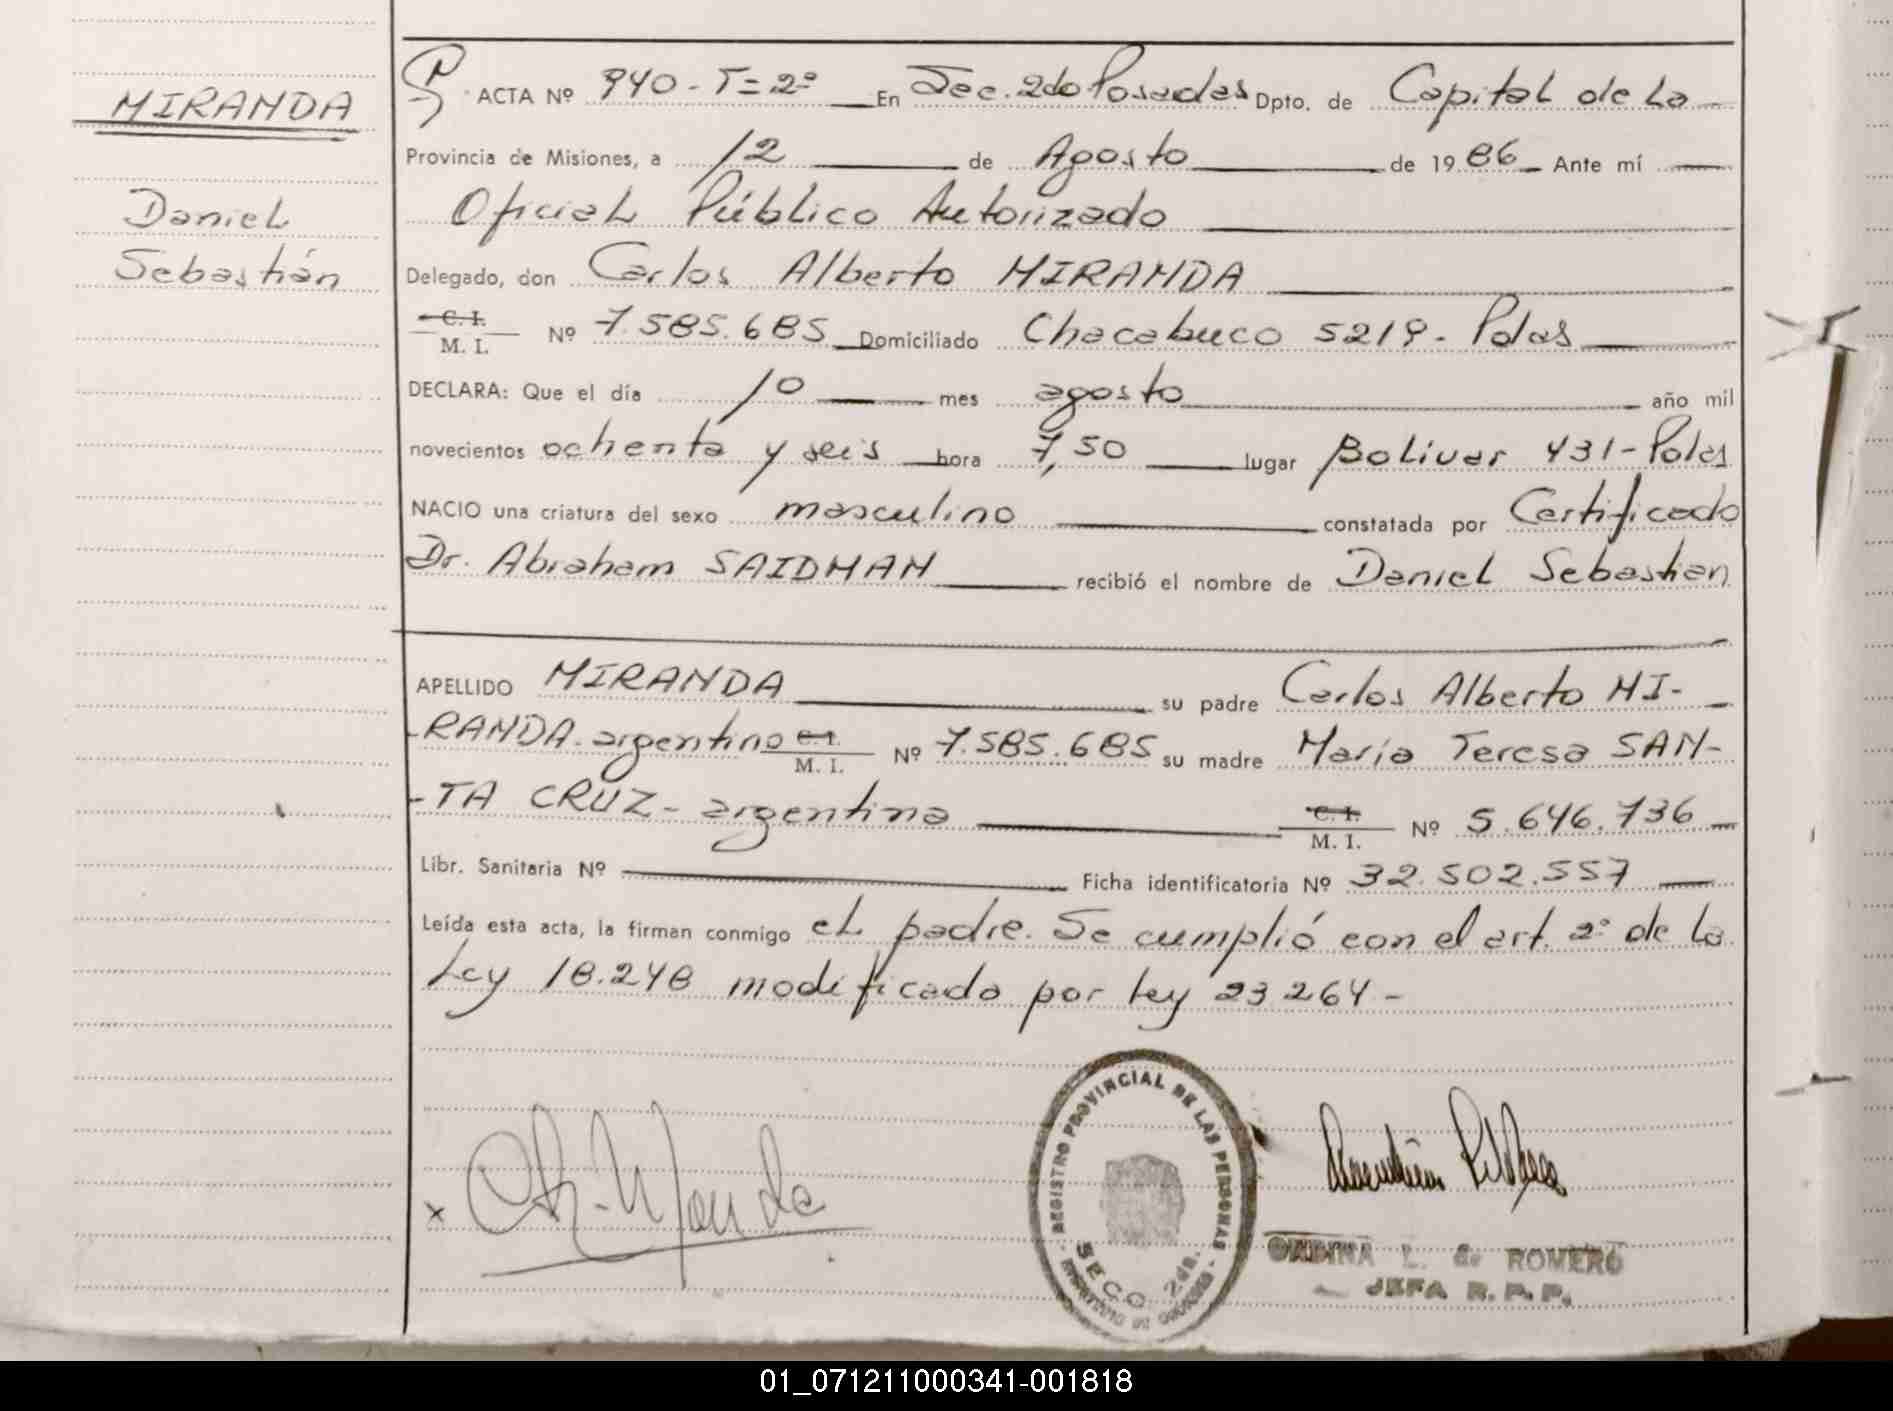 MIRANDA
Daniel
Sebastián
ACTA Nº 940 - T= 2º En Sec. 2do Posadas Dpto. de Capital de La
Provincia de Misiones, a 12 de Agosto de 1986 Ante mí
Oficial Público Autorizado
Delegado, don Carlos Alberto MIRANDA
C. I.
M. I. Nº 7.585.685 Domiciliado Chacabuco 5219 - Pdas
DECLARA: Que el día 10 mes agosto año mil
novecientos ochenta y seis hora 7,50 lugar Bolivar 431 - Pdas
NACIO una criatura del sexo masculino constatada por Certificado
Dr. Abraham SAIDMAN recibió el nombre de Daniel Sebastian
APELLIDO MIRANDA su padre Carlos Alberto MI-
-RANDA - argentino C. I. M. I. Nº 7.585.685 su madre María Teresa SAN-
-TA CRUZ - argentina C. I. M. I. Nº 5.646.736
Libr. Sanitaria Nº Ficha identificatoria Nº 32.502.557
Leída esta acta, la firman conmigo el padre. Se cumplió con el art. 2º de la
Ley 18.248 modificada por ley 23264 -
REGISTRO PROVINCIAL DE LAS PERSONAS
SECC. 2da.
L. de ROMERO
JEFA R. P. P.
01_071211000341-001818